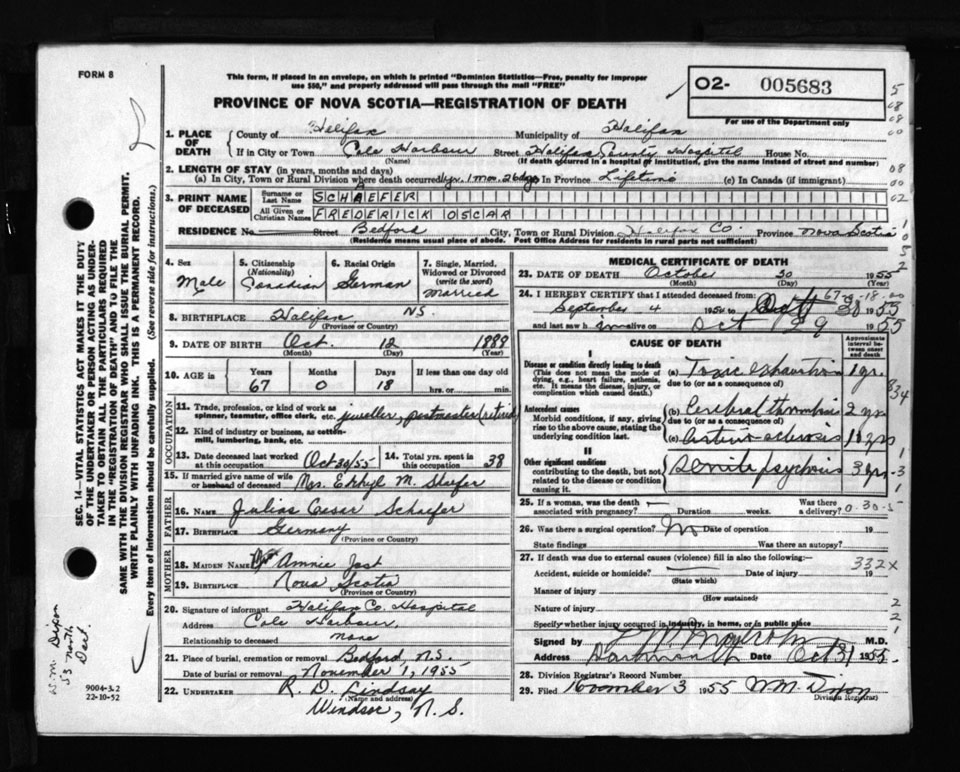 FORM 8
This form, if placed in an envelope, on which is printed "Dominion Statistics—Free, penalty for improper
use $50," and properly addressed will pass through the mail "FREE"
O2- 005683
For use of the Department only
PROVINCE OF NOVA SCOTIA—REGISTRATION OF DEATH
1. PLACE OF DEATH { County of Halifax Municipality of Halifax
If in City or Town Cole Harbour Street Halifax County Hospital House No.
(Name) (If death occurred in a hospital or institution, give the name instead of street and number)
2. LENGTH OF STAY (in years, months and days)
(a) In City, Town or Rural Division where death occurred 1 yr. 1 mon. 26 dys In Province Lifetime (c) In Canada (if immigrant)
3. PRINT NAME OF DECEASED { Surname or Last Name SCHAEFER
All Given or Christian Names FREDERICK OSCAR
RESIDENCE No. Street Bedford City, Town or Rural Division Halifax Co. Province Nova Scotia
(Residence means usual place of abode. Post Office Address for residents in rural parts not sufficient)
4. Sex Male
5. Citizenship (Nationality) Canadian
6. Racial Origin German
7. Single, Married, Widowed or Divorced (write the word) Married
8. BIRTHPLACE Halifax N.S.
(Province or Country)
9. DATE OF BIRTH Oct. 12 1888
(Month) (Day) (Year)
10. AGE in { Years 67 Months 0 Days 18 If less than one day
hrs. or min.
OCCUPATION
11. Trade, profession, or kind of work as
spinner, teamster, office clerk, etc. jeweller, postmaster (retired)
12. Kind of industry or business, as cotton-
mill, lumbering, bank, etc.
13. Date deceased last worked at this occupation Oct 30/55 14. Total yrs. spent in this occupation 38
15. If married give name of wife
or husband of deceased Mrs. M.
FATHER
16. NAME Julius Cesar Schaefer
17. BIRTHPLACE Germany
(Province or Country)
MOTHER
18. MAIDEN NAME Annie Jost
19. BIRTHPLACE Nova Scotia
(Province or Country)
20. Signature of informant Halifax Co. Hospital
Address Cole Harbour,
Relationship to deceased none
21. Place of burial, cremation or removal Bedford, N.S.
Date of burial or removal November 1, 1955
22. UNDERTAKER R. D. Lindsay
(Name and address)
Windsor, N.S.
MEDICAL CERTIFICATE OF DEATH
23. DATE OF DEATH October 30 1955
(Month) (Day) (Year)
67-0-18-00
24. I HEREBY CERTIFY that I attended deceased from:
September 4 1954 to Oct 30 1955
and last saw him alive on Oct 29 1955
CAUSE OF DEATH
Approximate interval between onset and death
I
Disease or condition directly leading to death
(This does not mean the mode of dying, e.g., heart failure, asthenia, etc. It means the disease, injury, or complication which caused death.)
(a) Toxic Exhaustion 1 yr.
due to (or as a consequence of)
334
Antecedent causes
Morbid conditions, if any, giving rise to the above cause, stating the underlying condition last.
(b) Cerebral thrombosis 2 yrs
due to (or as a consequence of)
(c) Arterio-sclerosis 10 yrs
II
Other significant conditions
contributing to the death, but not related to the disease or condition causing it.
Senile psychosis 3 yrs.
25. If a woman, was the death associated with pregnancy? Duration weeks. Was there a delivery?
26. Was there a surgical operation? No Date of operation 19
State findings Was there an autopsy?
27. If death was due to external causes (violence) fill in also the following:— 332X
Accident, suicide or homicide? Date of injury 19
(State which)
Manner of injury
(How sustained)
Nature of injury
Specify whether injury occurred in industry, in home, or in public place
Signed by M.D.
Address Dartmouth Date Oct 31 1955
28. Division Registrar's Record Number
29. Filed November 3 1955 W.M. Dixon
Division Registrar
SEC. 14—VITAL STATISTICS ACT MAKES IT THE DUTY
OF THE UNDERTAKER OR PERSON ACTING AS UNDER-
TAKER TO OBTAIN ALL THE PARTICULARS REQUIRED
IN THE "REGISTRATION OF DEATH" AND TO FILE THE
SAME WITH THE DIVISION REGISTRAR WHO SHALL ISSUE THE BURIAL PERMIT.
WRITE PLAINLY WITH UNFADING INK. THIS IS A PERMANENT RECORD.
Every item of information should be carefully supplied. (See reverse side for instructions.)
W.M. Dixon
53 North
Dart.
9004-3.2
22-10-52